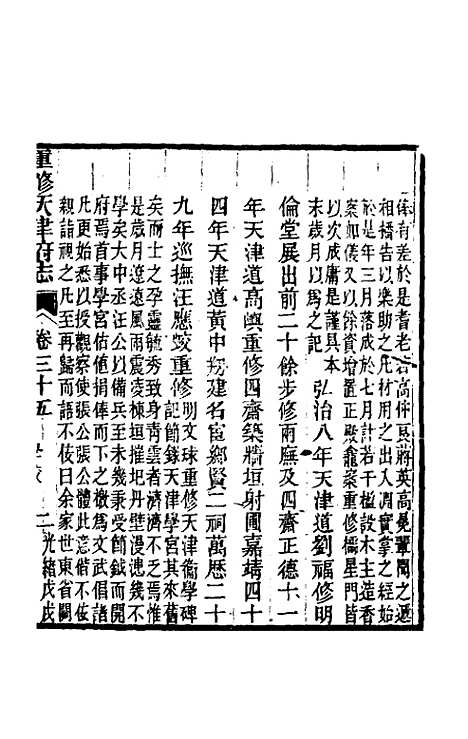 俸有差於是耆老若高仲民蔣英高冕輩聞之遞
相播告以樂助之凡材用之出入調實掌之經始
於是年三月落成於七月計若干楹設木主造香
案如儀又以餘資增置正殿龕案重修櫺星門皆
以次成庸是謹具本
末歲月以爲之記
弘治八年天津道劉福修明
倫堂展出前二十餘步修兩廡及四齋正德十一
年天津道高𡽱重修四齋築牆垣射圃嘉靖四十
四年天津道黃中刱建名宦鄉賢二祠萬歷二十
九年巡撫汪應蛟重修
明文球重修天津衞學碑
記節錄天津學宮其來舊
矣而士之孕靈毓秀致身青雲者濟濟不乏焉惟
是歲月遼遠風雨震凌棟垣摧圯丹壁漫漶幾不
學矣大中丞汪公以備兵至未幾秉受節鉞而開
府焉首事學宮估値捐俸而下之檄爲文武倡諸
凡更始悉以授觀察使張公張公體此意偕不佞
親詣視之凡至再歸而語不佞曰余家世東省闕
重修天津府志
卷三十五
學校
二
光緒戊戌